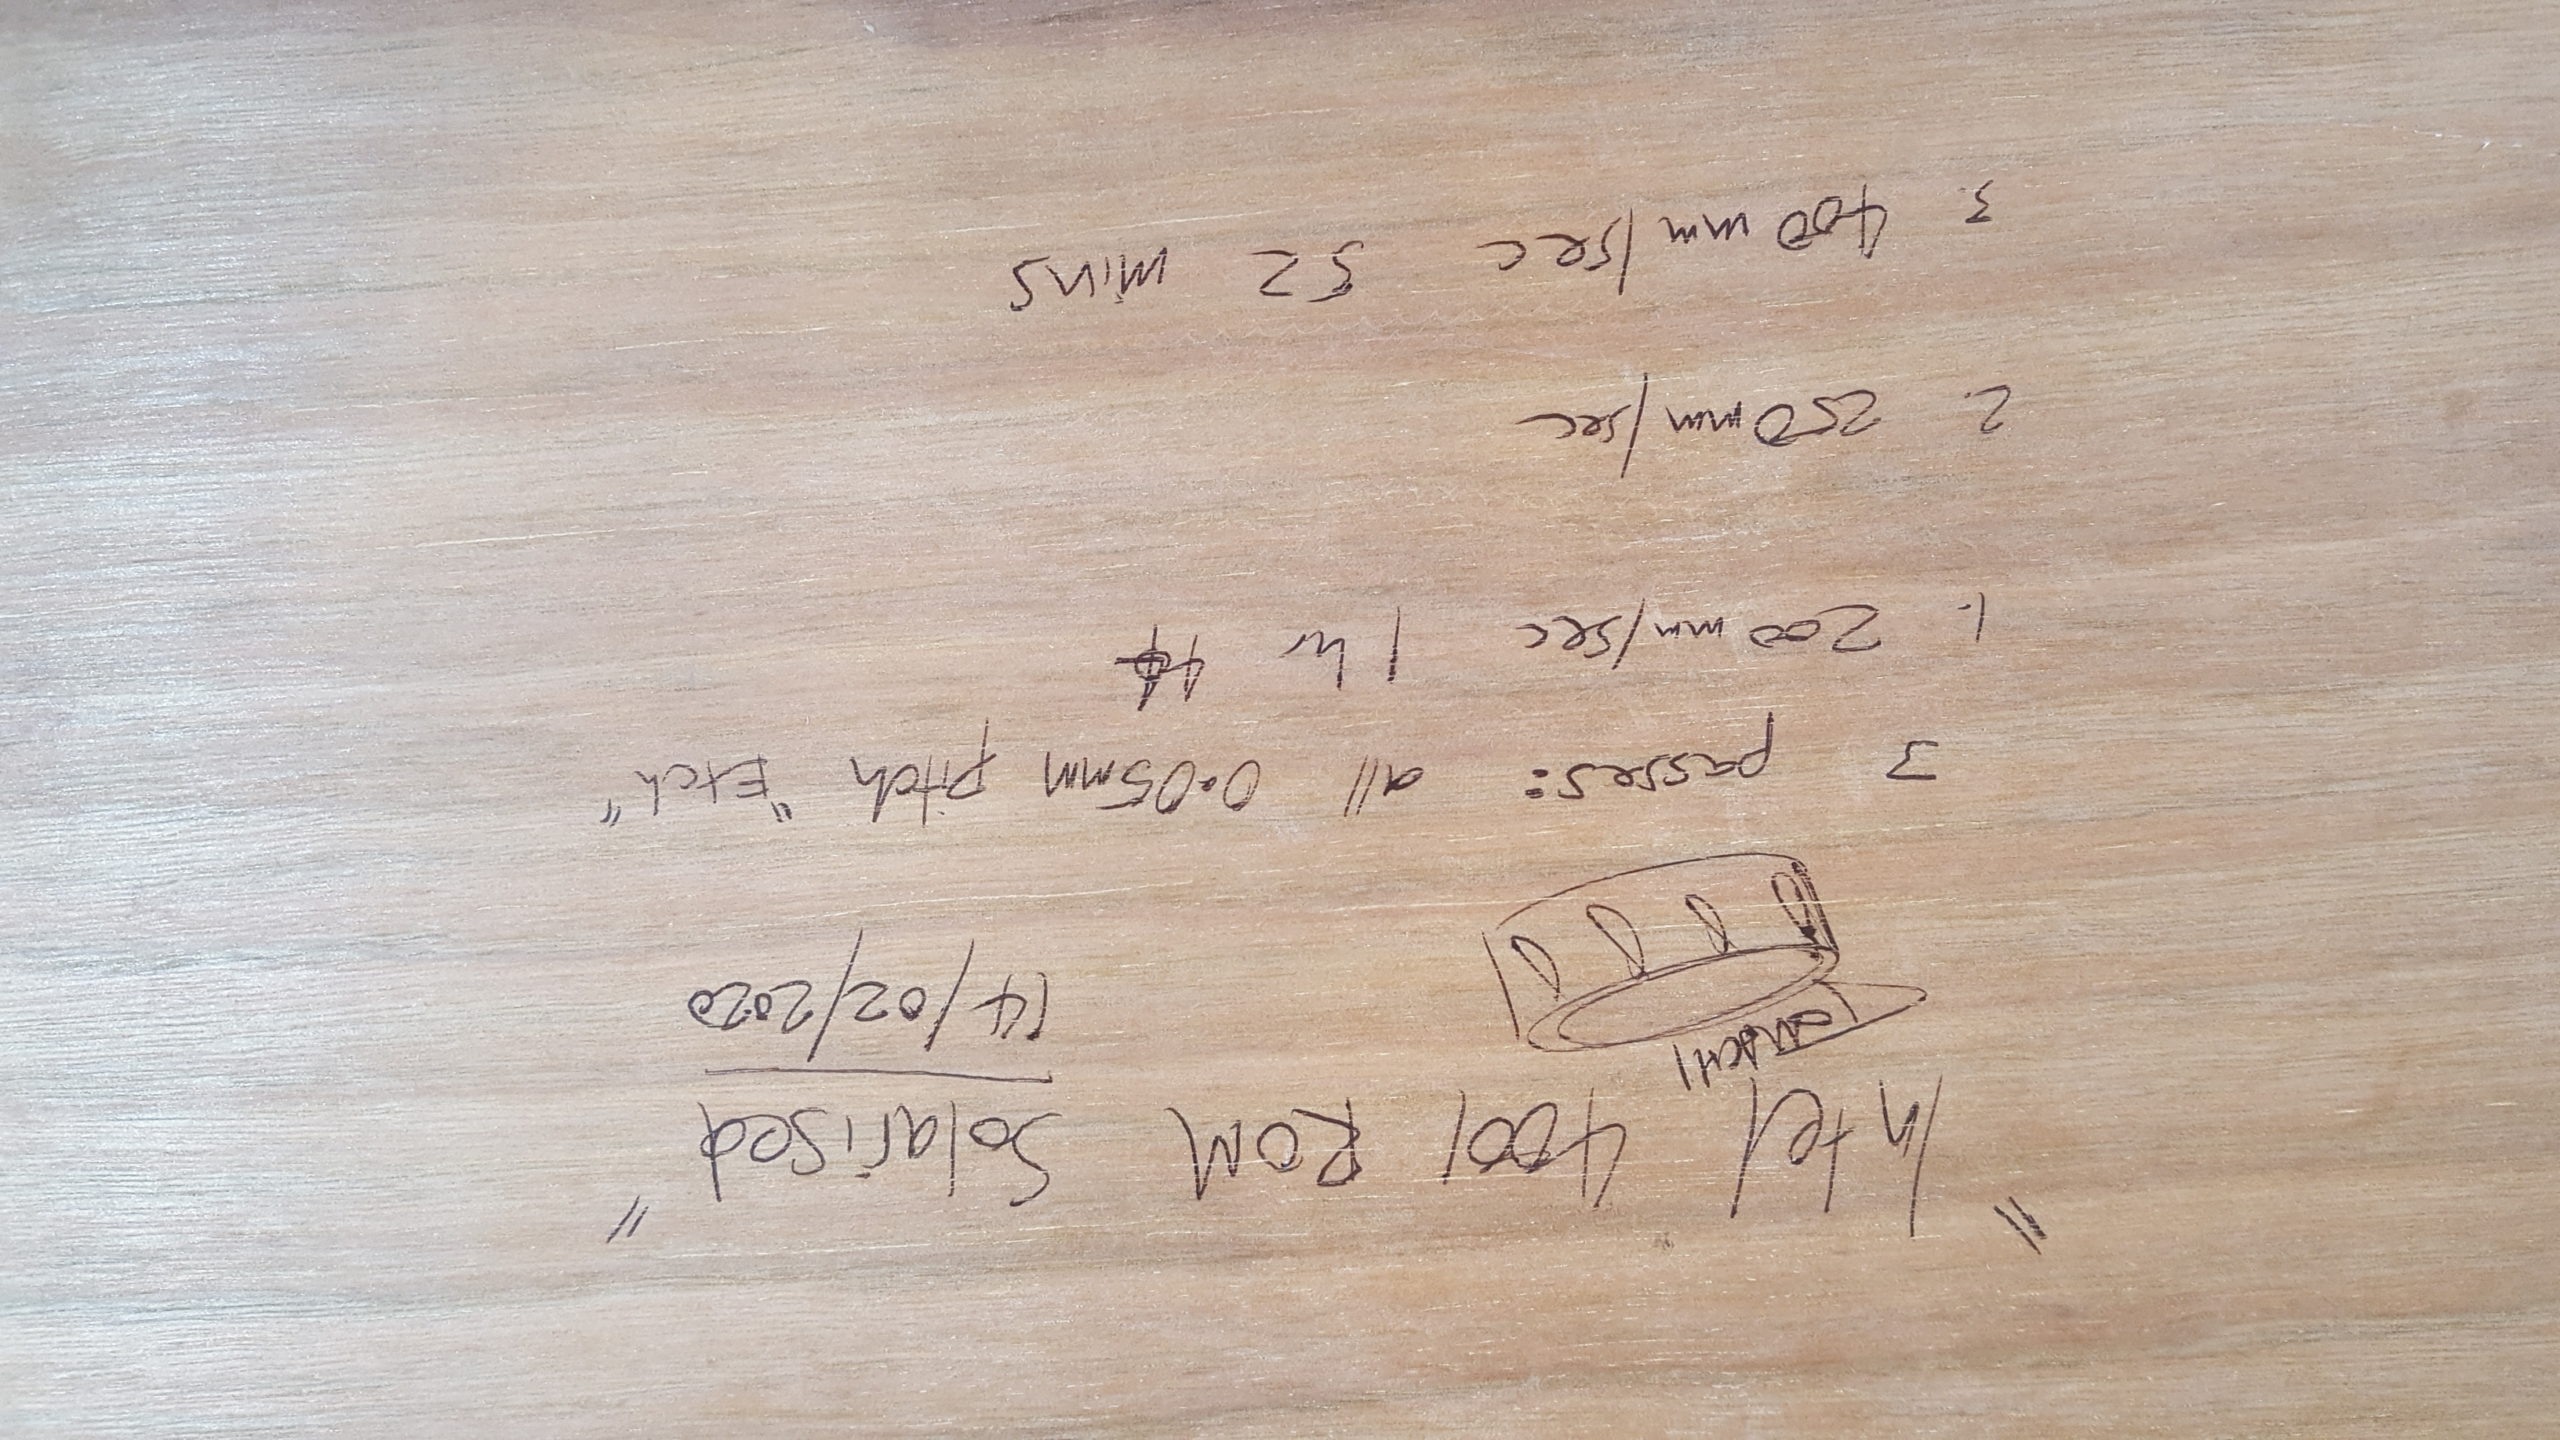 "Intel 4001 ROM Solarised"
14/02/2020
3 passes: all 0.05mm pitch "Etch"
1. 200mm/sec 1 hr
2. 250mm/sec
3. 400mm/sec 52 mins